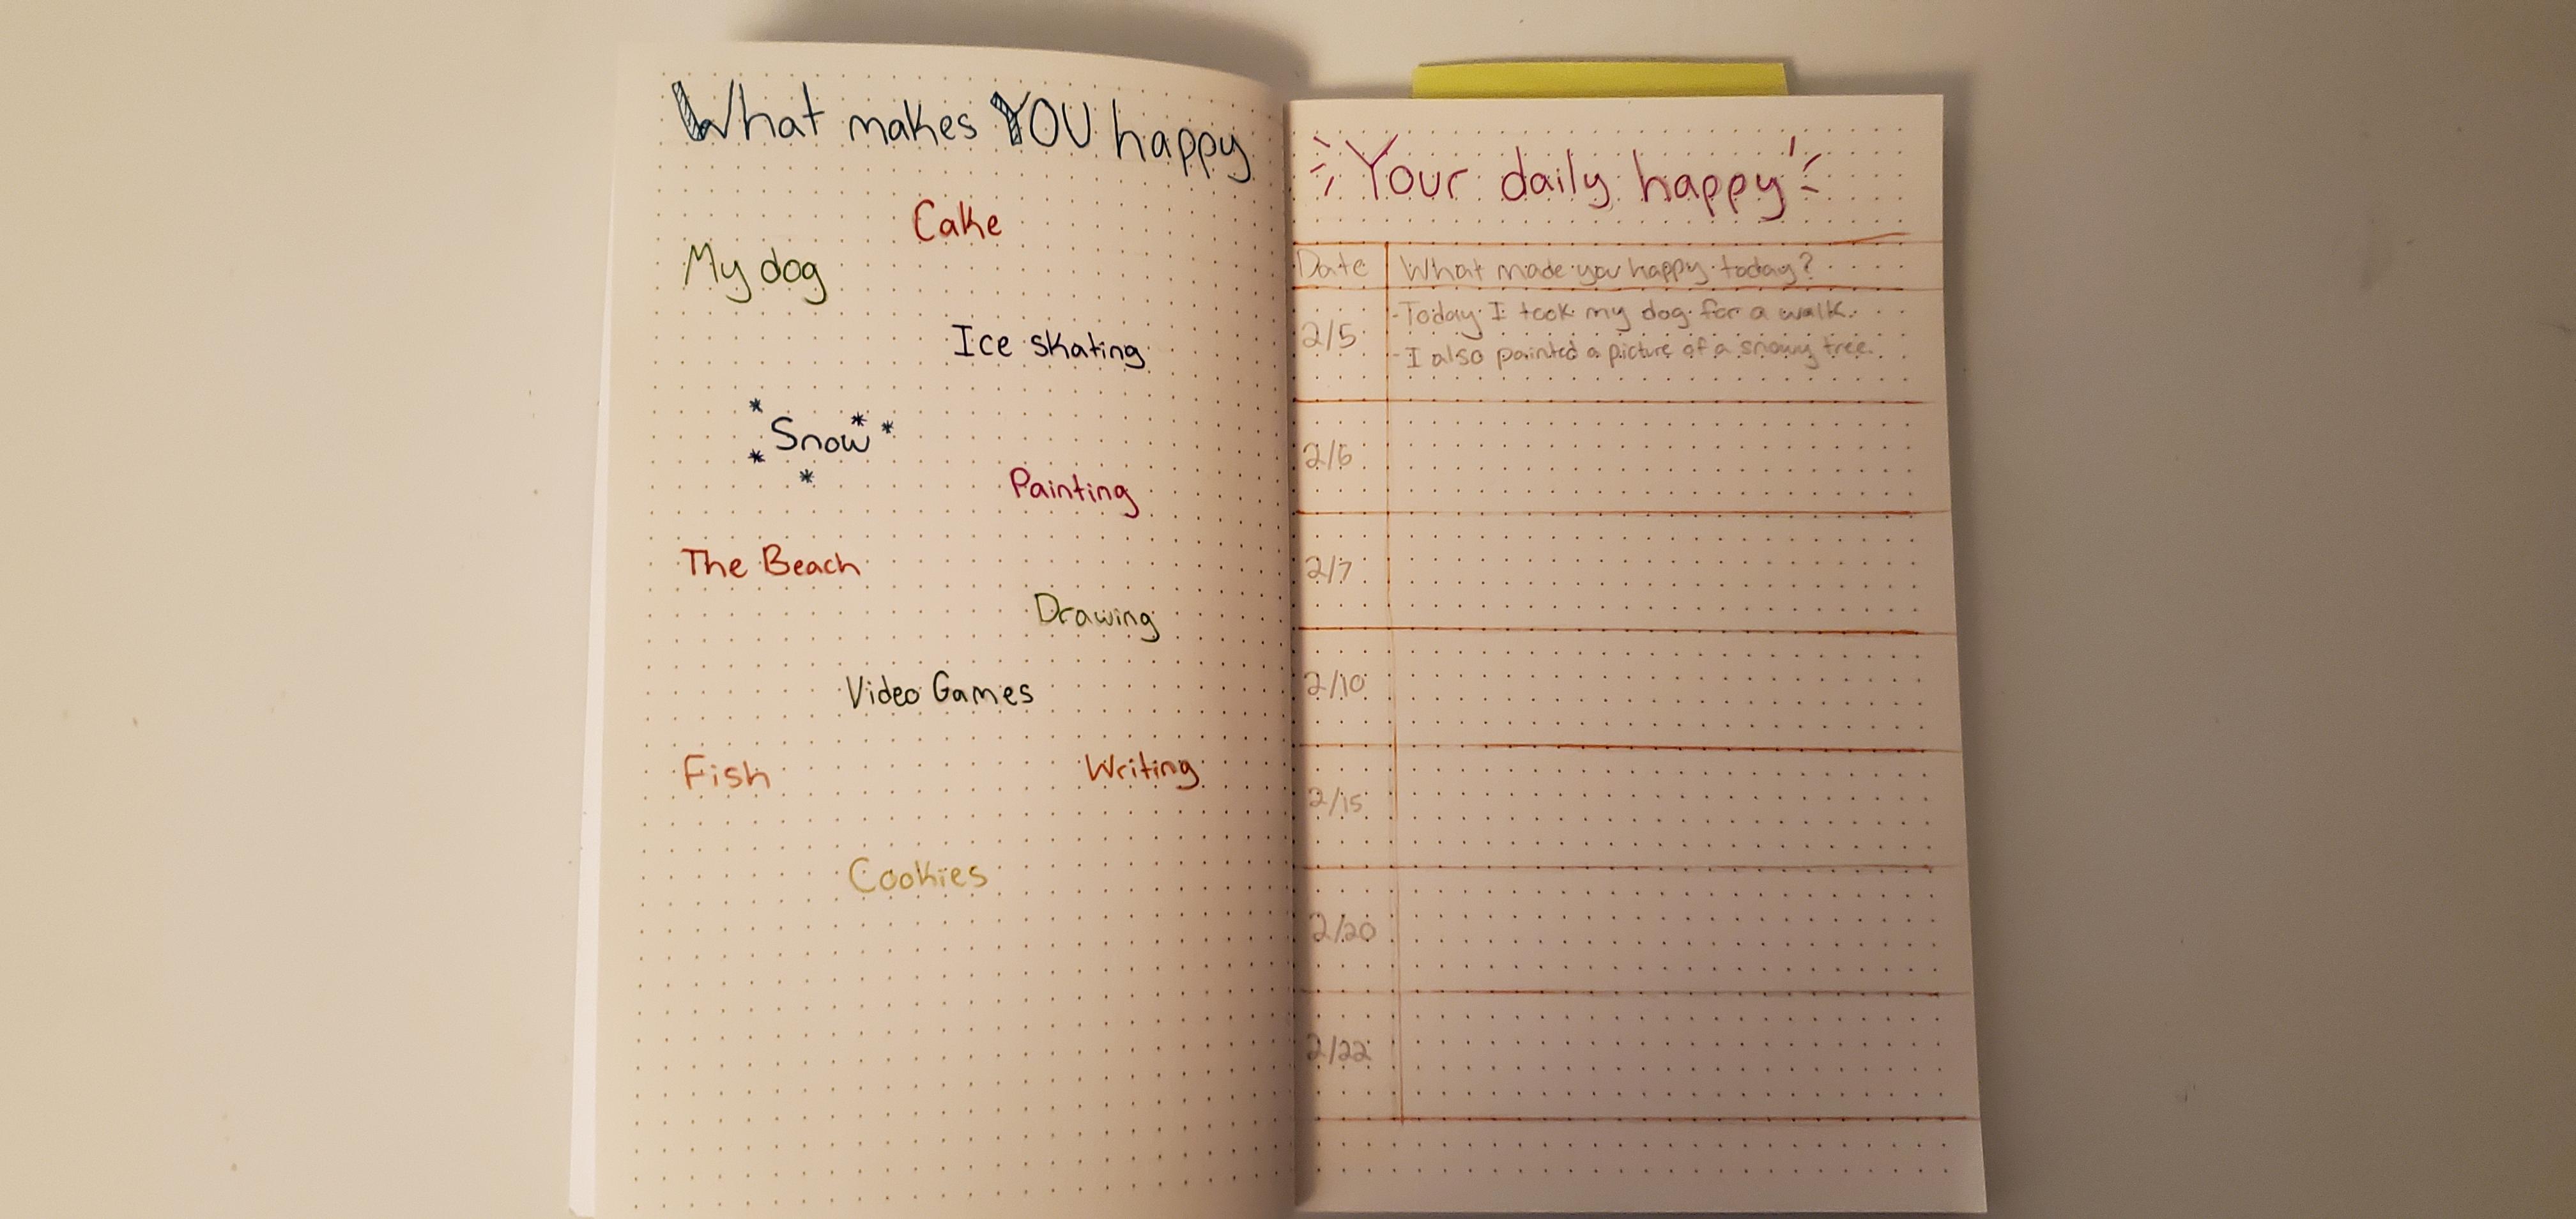 What makes YOU happy
Cake
My dog
Ice skating
Snow
Painting
The Beach
Drawing
Video Games
Fish
Writing
Cookies
Your daily happy
Date What made you happy today?
2/5
-Today I took my dog for a walk.
-I also painted a picture of a snowy tree.
2/6
2/7
2/10
2/15
2/20
2/22